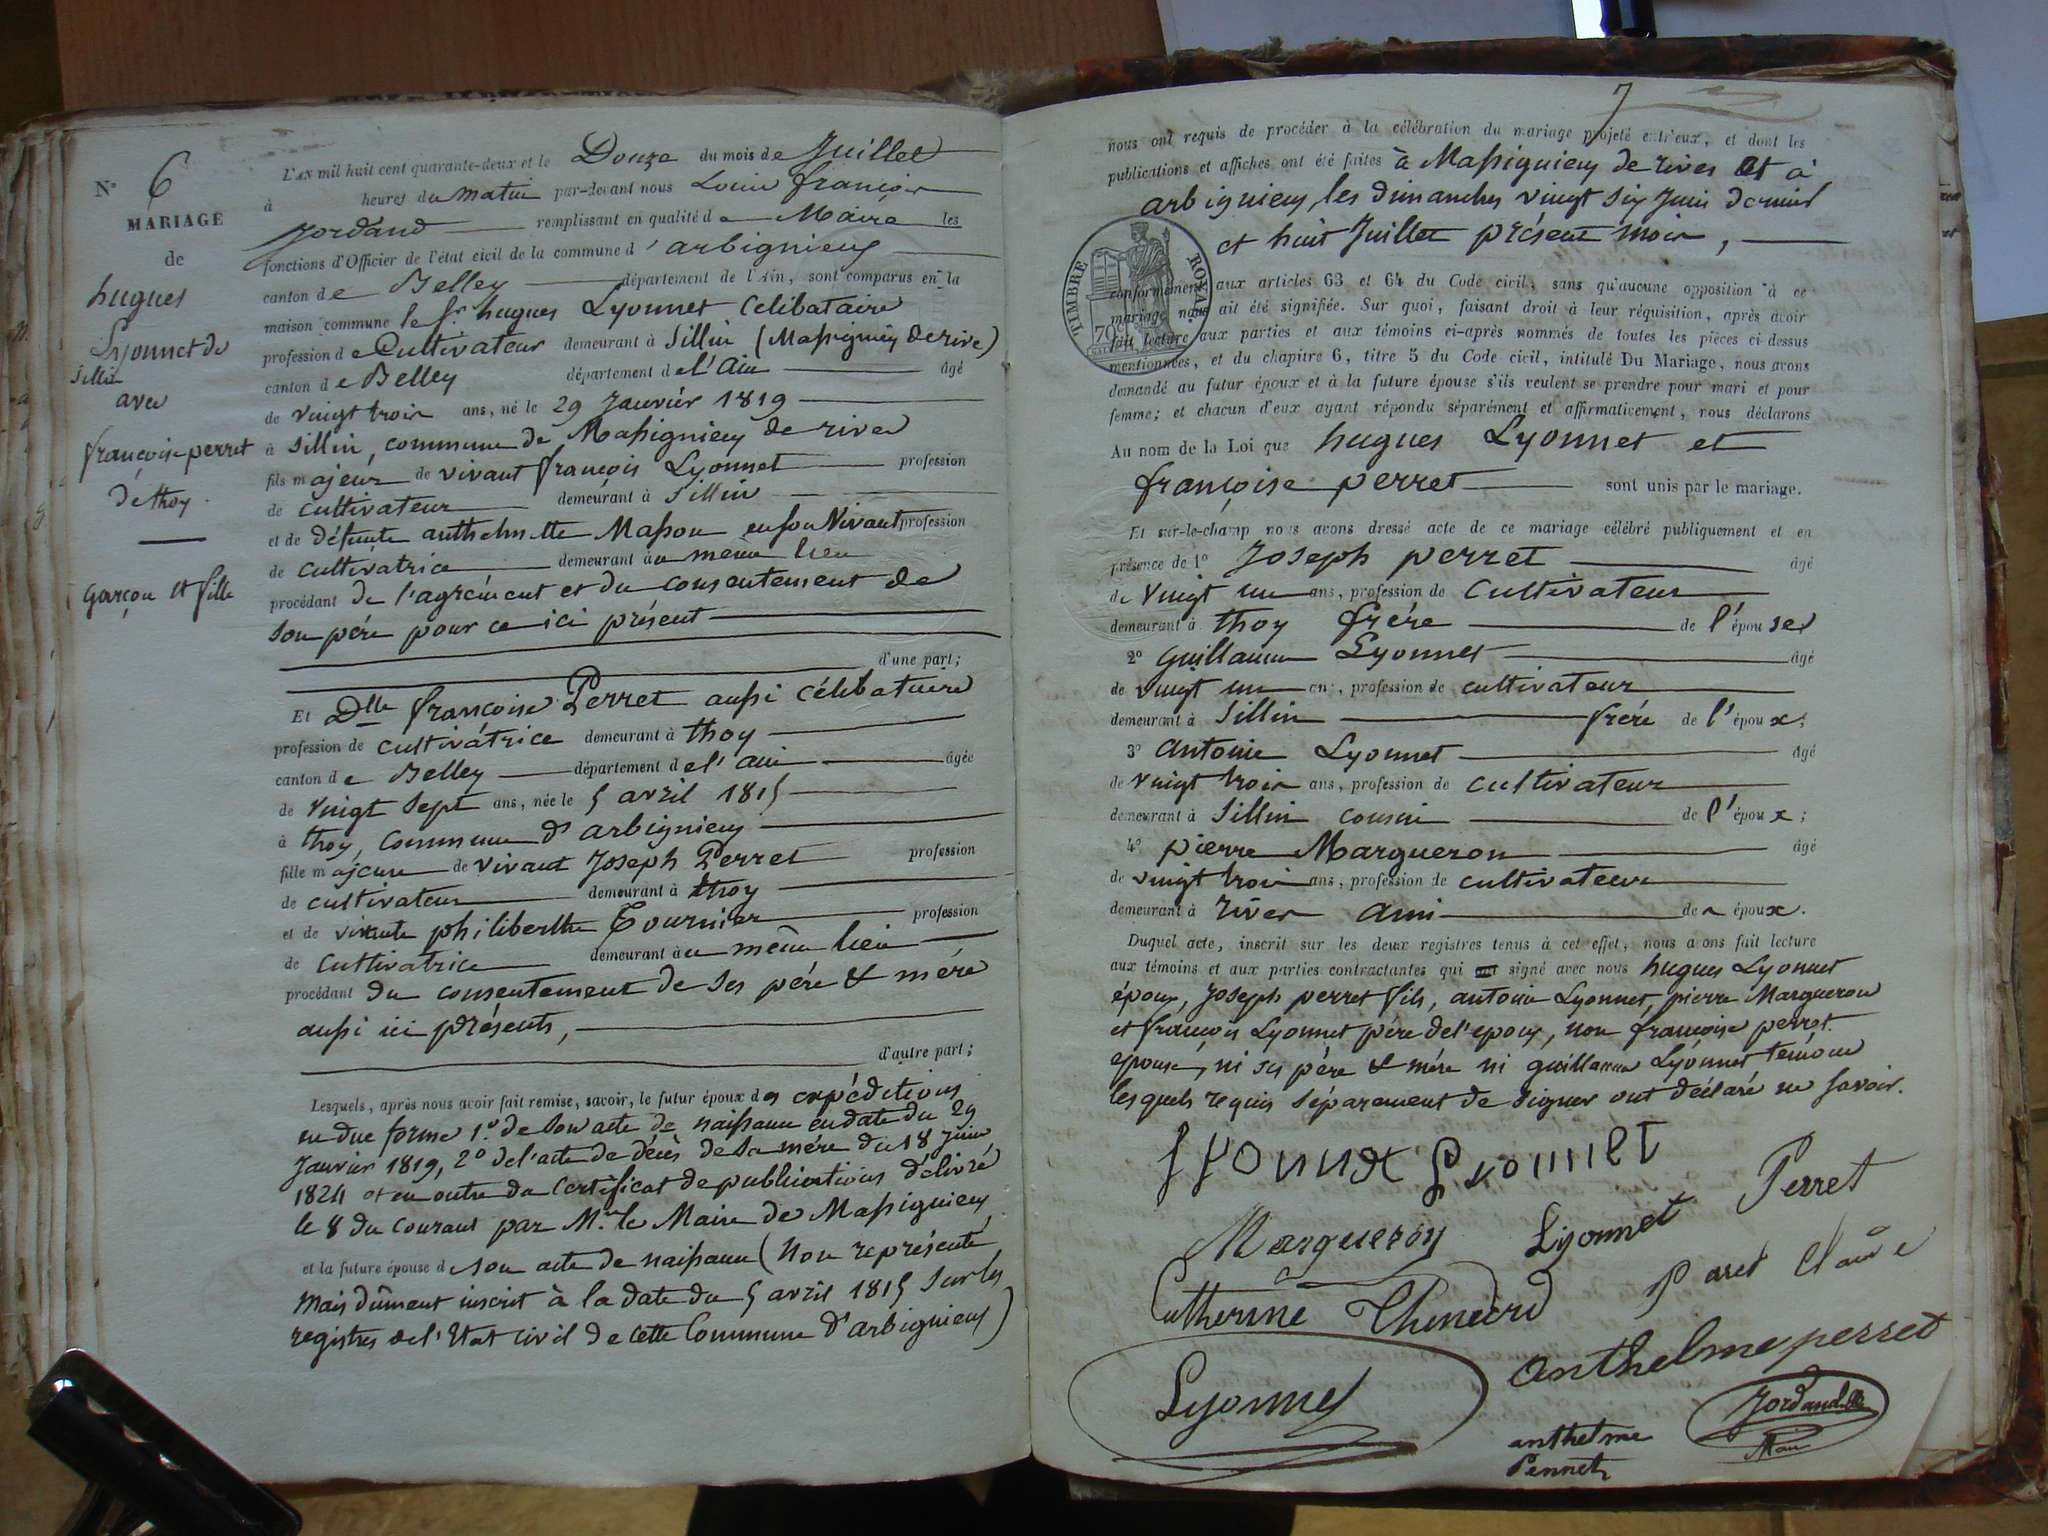 N° 6
MARIAGE
de
hugues
Lyonnet de
Sillin
avec
françoise perret
de thoy
garçon et fille
L'AN mil huit cent quarante-deux et le Douze du mois de Juillet
à heures du matin par-devant nous Louis françois
Jordand remplissant en qualité de Maire les
fonctions d'Officier de l'état civil de la commune d'arbignieu
canton de Belley département de l'Ain, sont comparus en la
maison commune le Sr hugues Lyonnet Celibataire
profession de Cultivateur demeurant à Sillin (Massignieu de rive)
canton de Belley département de l'Ain âgé
de vingt trois ans, né le 29 Janvier 1819
à Sillin, commune de Massignieu de rives
fils majeur de vivant françois Lyonnet profession
de cultivateur demeurant à Sillin
et de défunte anthelmette Masson en son Vivant profession
de cultivatrice demeurant au même lieu
procédant de l'agrément et du consentement de
son père pour ce ici présent
d'une part;
Et Dlle françoise Perret aussi célibataire
profession de cultivatrice demeurant à thoy
canton de Belley département de l'ain âgée
de vingt sept ans, née le 5 avril 1815
à thoy, commune d'arbignieu
fille majeure de vivant Joseph Perret profession
de cultivateur demeurant à thoy
et de vivante philiberthe Tournier profession
de cultivatrice demeurant au même lieu
procédant du consentement de ses père & mère
aussi ici présents,
d'autre part;
Lesquels, après nous avoir fait remise, savoir, le futur époux des expéditions
en due forme 1° de son acte de naissance en date du 29
Janvier 1819, 2° de l'acte de décès de sa mère du 18 Juin
1824 et en outre du certificat de publications délivré
le 8 du courant par Mr le Maire de Massignieu
et la future épouse de son acte de naissance (Non représenté
mais dûment inscrit à la date du 5 avril 1815 sur les
registres de l'Etat civil de cette Commune d'arbignieu)
7
nous ont requis de procéder à la célébration du mariage projeté entr'eux, et dont les
publications et affiches ont été faites à Massignieu de rives et à
arbignieu, les dimanches vingt six Juin dernier
et huit Juillet présent mois,
TIMBRE ROYAL
70c
conformément aux articles 63 et 64 du Code civil, sans qu'aucune opposition à ce
mariage nous ait été signifiée. Sur quoi, faisant droit à leur réquisition, après avoir
fait lecture aux parties et aux témoins ci-après nommés de toutes les pièces ci-dessus
mentionnées, et du chapitre 6, titre 5 du Code civil, intitulé Du Mariage, nous avons
demandé au futur époux et à la future épouse s'ils veulent se prendre pour mari et pour
femme; et chacun d'eux ayant répondu séparément et affirmativement, nous déclarons
Au nom de la Loi que hugues Lyonnet et
françoise perret sont unis par le mariage.
Et sur-le-champ nous avons dressé acte de ce mariage célébré publiquement et en
présence de 1° Joseph perret âgé
de vingt un ans, profession de cultivateur
demeurant à thoy frère de l'épouse
2° guillaume Lyonnet âgé
de vingt un ans, profession de cultivateur
demeurant à Sillin frère de l'époux;
3° antoine Lyonnet âgé
de vingt trois ans, profession de cultivateur
demeurant à Sillin cousin de l'époux;
4° pierre Margueron âgé
de vingt trois ans, profession de cultivateur
demeurant à rives ami des époux.
Duquel acte, inscrit sur les deux registres tenus à cet effet, nous avons fait lecture
aux témoins et aux parties contractantes qui ont signé avec nous hugues Lyonnet
époux, Joseph perret fils, antoine Lyonnet, pierre Margueron
et françois Lyonnet père de l'époux, non françoise perret
epouse, ni ses père & mère ni guillaume Lyonnet témoin
lesquels requis séparement de signer ont déclaré ne savoir.
Lyonnet Lyonnet
Perret
Margueron Lyonnet
Catherine Thenard
Peret Claude
anthelme perret
Lyonnet
Jordand
Maire
anthelme
Pennet